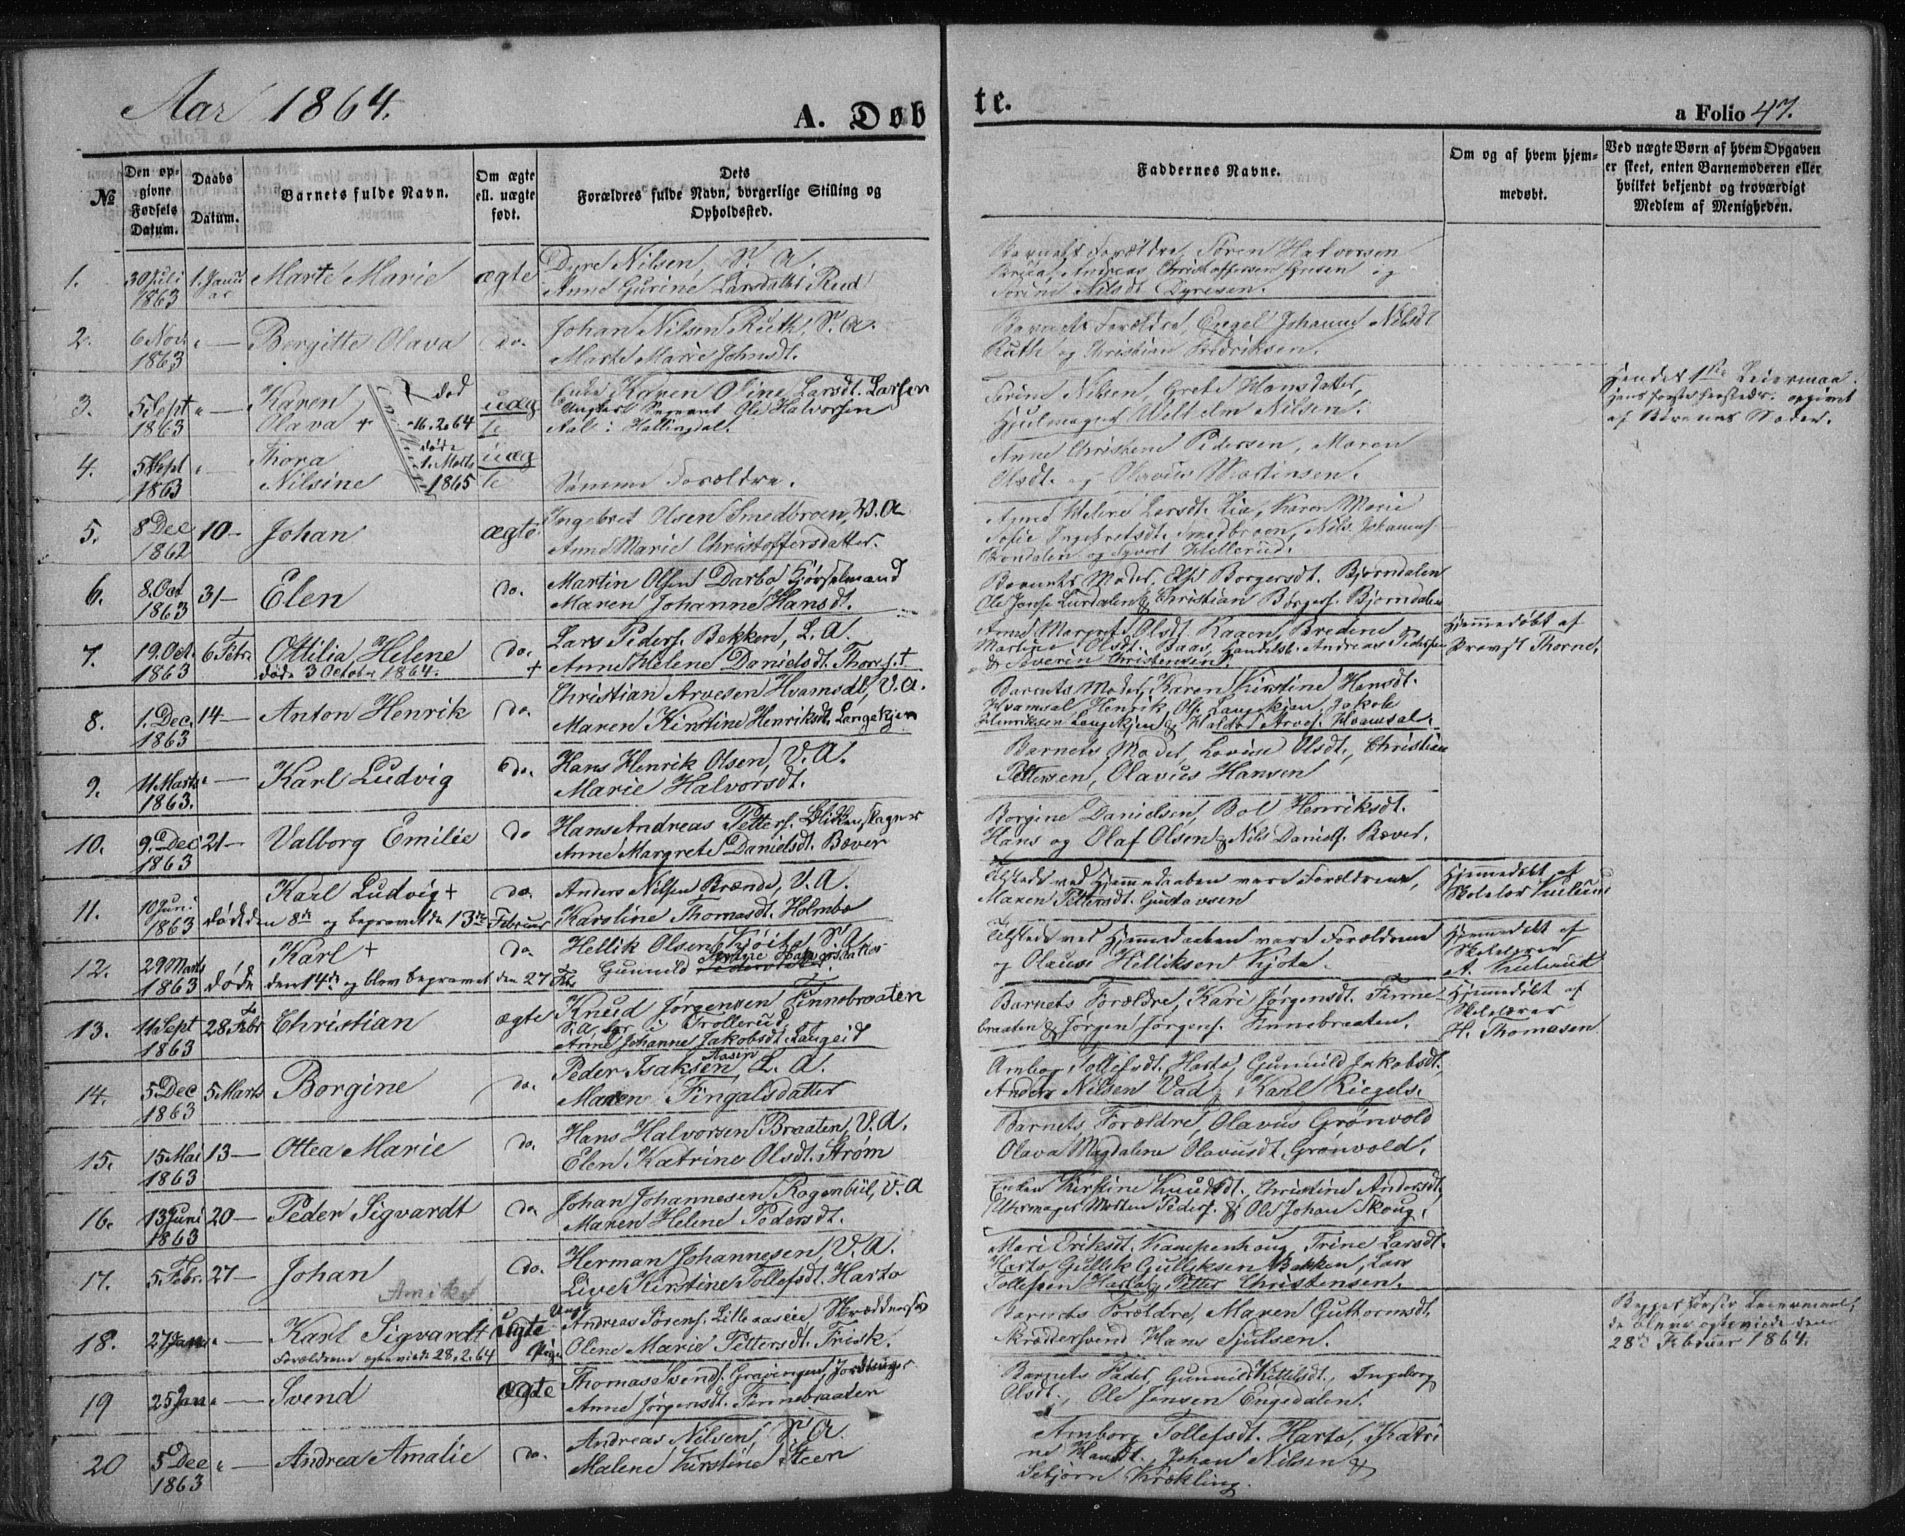 Aar 1864.
A. Døb
te.
a Folio 47.
№
Den opgivne Fødsels Datum.
Daabs Datum.
Barnets fulde Navn.
Om ægte ell. uægte født.
Dets Forældres fulde Navn, borgerlige Stilling og Opholdssted.
Faddernes Navne.
Om og af hvem hjemmedøbt.
Ved uægte Børn af hvem Opgaven er skeet, enten Barnemoderen eller hvilket bekjendt og troværdigt Medlem af Menigheden.
1. 30 Juli 1863 1. Januar Marte Marie ægte
Dyre Nilsen, S. A.
Anne Gurine Larsdatter Rud
Barnets Forældre, Søren Halvorsen
Andreas Christoffersen og
Sørine Nilsdt. Dyresen.
2. 6 Nov. 1863 " — Borgitte Olava do.
Johan Nilsen Ruth, S. A.
Marte Marie Johnsdt.
Barnets Forældre, Engel Johanne Nilsdt
Ruth og Christian Fredriksen.
3. 5 Sept 1863 " — Karen Olava + død 16.2.64 uægte
Karen Oline Larsdt. Larsen
Ungkarl Sergeant Ole Halvorsen
Aal i Hallingdal.
Sørine Nilsen, Grete Hansdatter,
Hjulmager Wilhelm Nilsen.
Hendes 1ste Leiermaal
af Børnenes Moder.
4. 5 Sept 1863 " — Thora Nilsine døde 1. Marts 1865 uægte
Samme Forældre.
Anne Christine Pedersen, Maren
Olsdt. og Olavus Martinsen.
5. 8 Dec 1862 10 — Johan ægte
Ingebret Olsen Smedbroen, V. A.
Anne Marie Christoffersdatter.
Anne Helene Larsdt. Lia, Karen Marie
Sofie Ingebretsdt. Smedbroen, Nils Johannes
og Syvert Hellerud.
6. 8. Oct 1863 31 — Elen do.
Martin Olsen Darbo Kjørselmand
Maren Johanne Hansdt.
Barnets Moder, Else Borgersdt. Bjørndalen
Ole Jonse Lurdalen & Christian Børgers. Bjørndalen
7. 19. Oct. 1863 6 Febr. Ottilia Helene do.
døde 3 October 1864. +
Lars Peders. Bekken, L. A.
Anne Helene Danielsdt. Thores. +
Anne Margrete Olsdt. Kaaen, Bredine
Martine Olsdt. Baas, Handelsb. Andreas Pedersen
& Severin Christensen.
Hjemmedøbt af
Provst Thorne.
8. 1. Dec. 1863 14 — Anton Henrik do.
Christian Arvesen Hvamsdl, V. A.
Maren Kirstine Henriksdt. Langekjen
Barnets Moder, Karen Kirstine Hansdt.
Hvamsal, Henrik Ols. Langekjen, Jakob
Henriksen Langekjen & Halvor Arves. Hvamsal.
9. 11 Marts 1863. " — Karl Ludvig do.
Hans Henrik Olsen, V. A.
Marie Halvorsdt.
Barnets Moder, Lovise Olsdt., Christian
Pettersen, Olavus Hansen
10. 9. Dec 1863 21 — Valborg Emilie do
Hans Andreas Petters. Blikkenslager
Anne Margrete Danielsdt. Bæver
Borgine Danielsen, Bol. Henriksdt.
Hans og Olaf Olsen & Nils Daniels. Bæver.
11. 10 Juni 1863 Karl Ludvig + do.
døde den 8de og begravet den 13de Februar
Anders Nilsen Brænde, V. A.
Karoline Thomasdt. Holmbo
Tilstede ved Hjemmedaaben vare Forældrene,
Maren Pettersdt. Gustavsen
Hjemmedøbt af
12. 29 Marts 1863 Karl + do
døde den 14de og blev begravet den 27 Febr.
Hellik Olsen Kjøita, S. A.
Gunnild
Tilstede ved Hjemmedaaben vare Forældrene
og Olaus Helliksen Kjøta.
Hjemmedøbt af
Skolelærer
13. 11 Sept 1863 28 Febr Christian ægte
Knud Jørgensen Finnebraaten
V. A. før i Trollerud
Anne Johanne Jakobsdt. Langeid
Barnets Forældre, Kari Jørgensdt. Finne-
braaten & Jørgen Jørgens. Finnebraaten.
Hjemmedøbt af
Skolelærer
H. Thomasen
14. 5 Dec 1863 5 Marts Borgine do.
Peder Isaksen Aasen, L. A.
Maren Fingalsdatter
Anbor Tollefsdt. Harto, Gunnild Jakobsdt.
Anders Nilsen Vad, Karl Riegels.
15. 15 Mai 1863 13 — Ottea Marie do.
Hans Halvorsen Braaten, V. A.
Elen Katrine Olsdt. Strøm
Barnets Forældre, Olavus Grønvold
Olava Magdalene Olavusdt. Grønvold.
16. 13 Juni 1863 20 — Peder Sigvardt do
Johan Johannesen Rogenbül, V. A
Maren Helene Pedersdt.
Enken Kirstine Knudsdt., Christine Andersdt.
Uhrmager Morten Peders. & Ole Johan Skoug.
17. 5. Febr. 27 — Johan do.
Herman Johannesen, V. A.
Live Kirstine Tollefsdt. Harto
Mari Eriksdt. Kampenhoug, Trine Larsdt.
Harto, Gullik Gulliksen Bakken, Lars
Tollefsen Harto & Petter Christensen.
18. 27 Jan " — Karl Sigvardt uægte
Forældrene egteviede 28.2.64
Ungk. Andreas Sørens. Lilleaasen, Skræddersv.
Pige Oline Marie Pettersdt. Frisk.
Barnets Forældre, Maren Guthormsdt.
Skræddersvend Hans Sjulsen.
Begges første Leiermaal,
de bleve egteviede den
28de Februar 1864.
19 25 Jan " — Svend ægte
Thomas Svends. Gravingen, Jordbruger
Anne Jørgensdt. Finnebraaten
Barnets Fader, Gunnild Kittilsdt., Ingeborg
Olsdt., Ole Jensen Engedalen.
20 5 Dec 1863 " — Andrea Amalie do.
Andreas Nilsen, S. A.
Malene Kirstine Steen
Anborg Tollefsdt. Harto, Katri
ne Hansdt. Johan Nilsen &
Sebjørn Krækling.